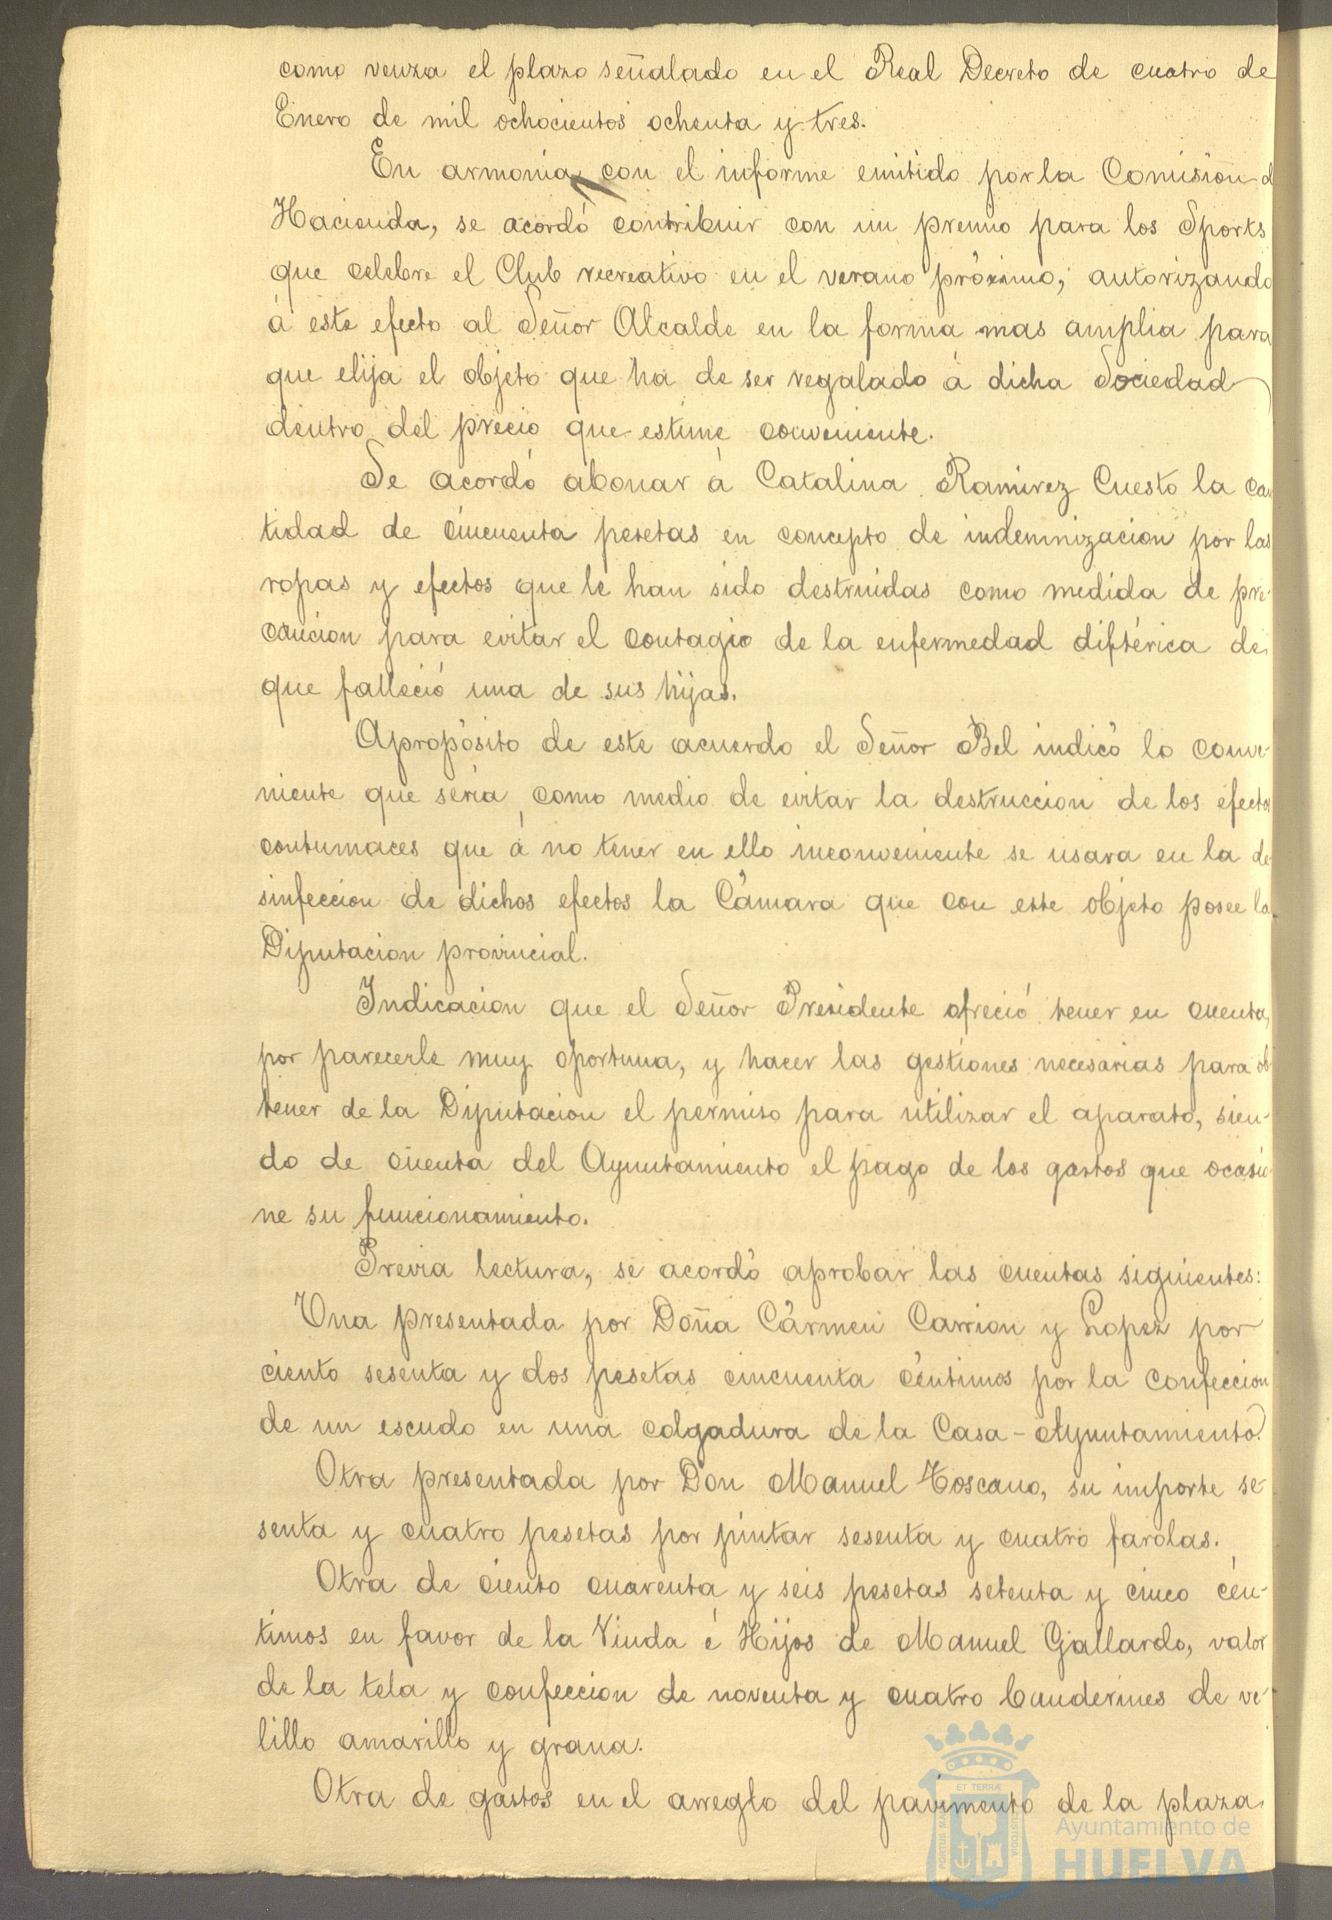 como venza el plazo señalado en el Real Decreto de cuatro de
Enero de mil ochocientos ochenta y tres.
En armonía con el informe emitido por la Comision d
Hacienda, se acordó contribuir con un premio para los Sports
que celebre el Club recreativo en el verano próximo, autorizando
á este efecto al Señor Alcalde en la forma mas amplia para
que elija el objeto que ha de ser regalado á dicha Sociedad
dentro del precio que estime conveniente.
Se acordó abonar á Catalina Ramirez Cuesto la can
tidad de cincuenta pesetas en concepto de indemnizacion por las
ropas y efectos que le han sido destruidas como medida de pre-
caucion para evitar el contagio de la enfermedad diftérica de
que falleció una de sus hijas.
Apropósito de este acuerdo el Señor Bel indicó lo conve-
niente que sería, como medio de evitar la destruccion de los efectos
contumaces que á no tener en ello inconveniente se usara en la de
sinfeccion de dichos efectos la Cámara que con este objeto posee la
Diputacion provincial.
Indicacion que el Señor Presidente ofreció tener en cuenta,
por parecerle muy oportuna, y hacer las gestiones necesarias para ob
tener de la Diputacion el permiso para utilizar el aparato, sien-
do de cuenta del Ayuntamiento el pago de los gastos que ocasio
ne su funcionamiento.
Previa lectura, se acordó aprobar las cuentas siguientes:
Una presentada por Doña Cármen Carrion y Lopez por
ciento sesenta y dos pesetas cincuenta céntimos por la confeccion
de un escudo en una colgadura de la Casa-Ayuntamiento.
Otra presentada por Don Manuel Toscano, su importe se-
senta y cuatro pesetas por pintar sesenta y cuatro farolas.
Otra de ciento cuarenta y seis pesetas setenta y cinco cén-
timos en favor de la Viuda é Hijos de Manuel Gallardo, valor
de la tela y confeccion de noventa y cuatro banderines de ve-
lillo amarillo y grana.
Otra de gastos en el arreglo del pavimento de la plaza
ET TERRÆ
CUSTODIA
Ayuntamiento de
HUELVA